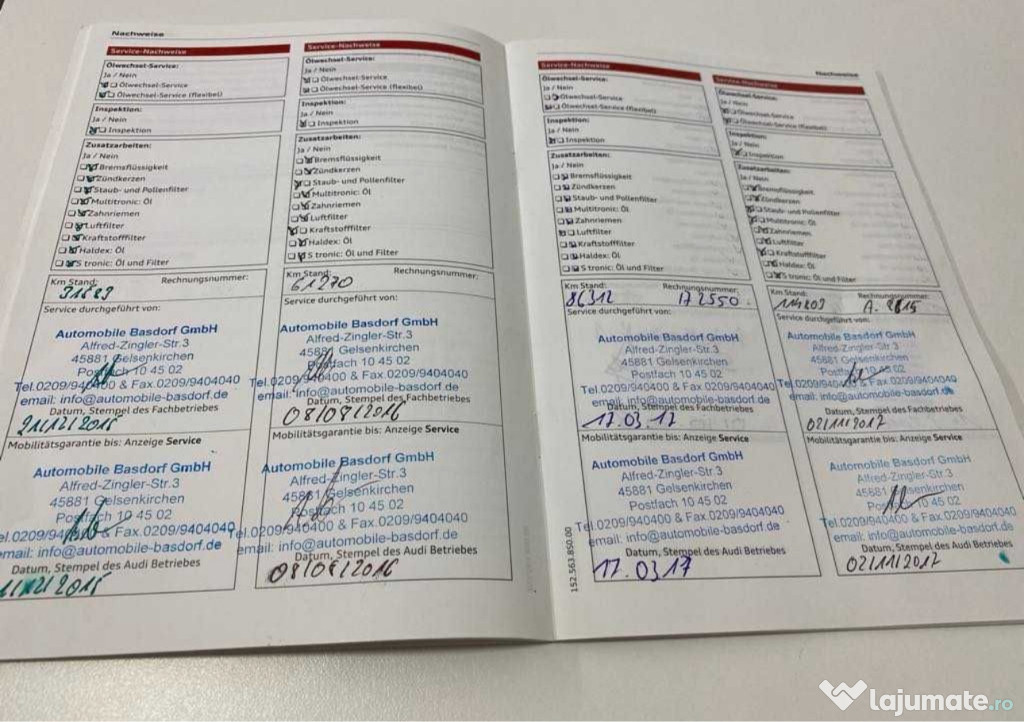 Nachweise
Service-Nachweise
Ölwechsel-Service:
Ja / Nein
Ölwechsel-Service
Ölwechsel-Service (flexibel)
Inspektion:
Ja / Nein
Inspektion
Zusatzarbeiten:
Ja / Nein
Bremsflüssigkeit
Zündkerzen
Staub- und Pollenfilter
Multitronic: Öl
Zahnriemen
Luftfilter
Kraftstofffilter
Haldex: Öl
S tronic: Öl und Filter
Km Stand: Rechnungsnummer:
31683
Service durchgeführt von:
Automobile Basdorf GmbH
Alfred-Zingler-Str.3
45881 Gelsenkirchen
Postfach 10 45 02
Tel.0209/940400 & Fax.0209/9404040
email: info@automobile-basdorf.de
Datum, Stempel des Fachbetriebes
Mobilitätsgarantie bis: Anzeige Service
Automobile Basdorf GmbH
Alfred-Zingler-Str.3
45881 Gelsenkirchen
Postfach 10 45 02
Tel.0209/940400 & Fax.0209/9404040
email: info@automobile-basdorf.de
Datum, Stempel des Audi Betriebes
Service-Nachweise
Ölwechsel-Service:
Ja / Nein
Ölwechsel-Service
Ölwechsel-Service (flexibel)
Inspektion:
Ja / Nein
Inspektion
Zusatzarbeiten:
Ja / Nein
Bremsflüssigkeit
Zündkerzen
Staub- und Pollenfilter
Multitronic: Öl
Zahnriemen
Luftfilter
Kraftstofffilter
Haldex: Öl
S tronic: Öl und Filter
Km Stand: Rechnungsnummer:
61270
Service durchgeführt von:
Automobile Basdorf GmbH
Alfred-Zingler-Str.3
45881 Gelsenkirchen
Postfach 10 45 02
Tel.0209/940400 & Fax.0209/9404040
email: info@automobile-basdorf.de
Datum, Stempel des Fachbetriebes
08/08/2016
Mobilitätsgarantie bis: Anzeige Service
Automobile Basdorf GmbH
Alfred-Zingler-Str.3
45881 Gelsenkirchen
Postfach 10 45 02
Tel.0209/940400 & Fax.0209/9404040
email: info@automobile-basdorf.de
Datum, Stempel des Audi Betriebes
08/08/2016
Service-Nachweise
Ölwechsel-Service:
Ja / Nein
Ölwechsel-Service
Ölwechsel-Service (flexibel)
Inspektion:
Ja / Nein
Inspektion
Zusatzarbeiten:
Ja / Nein
Bremsflüssigkeit
Zündkerzen
Staub- und Pollenfilter
Multitronic: Öl
Zahnriemen
Luftfilter
Kraftstofffilter
Haldex: Öl
S tronic: Öl und Filter
Km Stand: Rechnungsnummer:
86312 A2550
Service durchgeführt von:
Automobile Basdorf GmbH
Alfred-Zingler-Str.3
45881 Gelsenkirchen
Postfach 10 45 02
Tel.0209/940400 & Fax.0209/9404040
email: info@automobile-basdorf.de
Datum, Stempel des Fachbetriebes
17.03.17
Mobilitätsgarantie bis: Anzeige Service
Automobile Basdorf GmbH
Alfred-Zingler-Str.3
45881 Gelsenkirchen
Postfach 10 45 02
Tel.0209/940400 & Fax.0209/9404040
email: info@automobile-basdorf.de
Datum, Stempel des Audi Betriebes
17.03.17
152.563.850.00
Nachweise
Service-Nachweise
Ölwechsel-Service:
Ja / Nein
Ölwechsel-Service
Ölwechsel-Service (flexibel)
Inspektion:
Ja / Nein
Inspektion
Zusatzarbeiten:
Ja / Nein
Bremsflüssigkeit
Zündkerzen
Staub- und Pollenfilter
Multitronic: Öl
Zahnriemen
Luftfilter
Kraftstofffilter
Haldex: Öl
S tronic: Öl und Filter
Km Stand: Rechnungsnummer:
Service durchgeführt von:
Automobile Basdorf GmbH
Alfred-Zingler-Str.3
45881 Gelsenkirchen
Postfach 10 45 02
Tel.0209/940400 & Fax.0209/9404040
email: info@automobile-basdorf.de
Datum, Stempel des Fachbetriebes
02/11/2017
Mobilitätsgarantie bis: Anzeige Service
Automobile Basdorf GmbH
Alfred-Zingler-Str.3
45881 Gelsenkirchen
Postfach 10 45 02
Tel.0209/940400 & Fax.0209/9404040
email: info@automobile-basdorf.de
Datum, Stempel des Audi Betriebes
02/11/2017
lajumate.ro